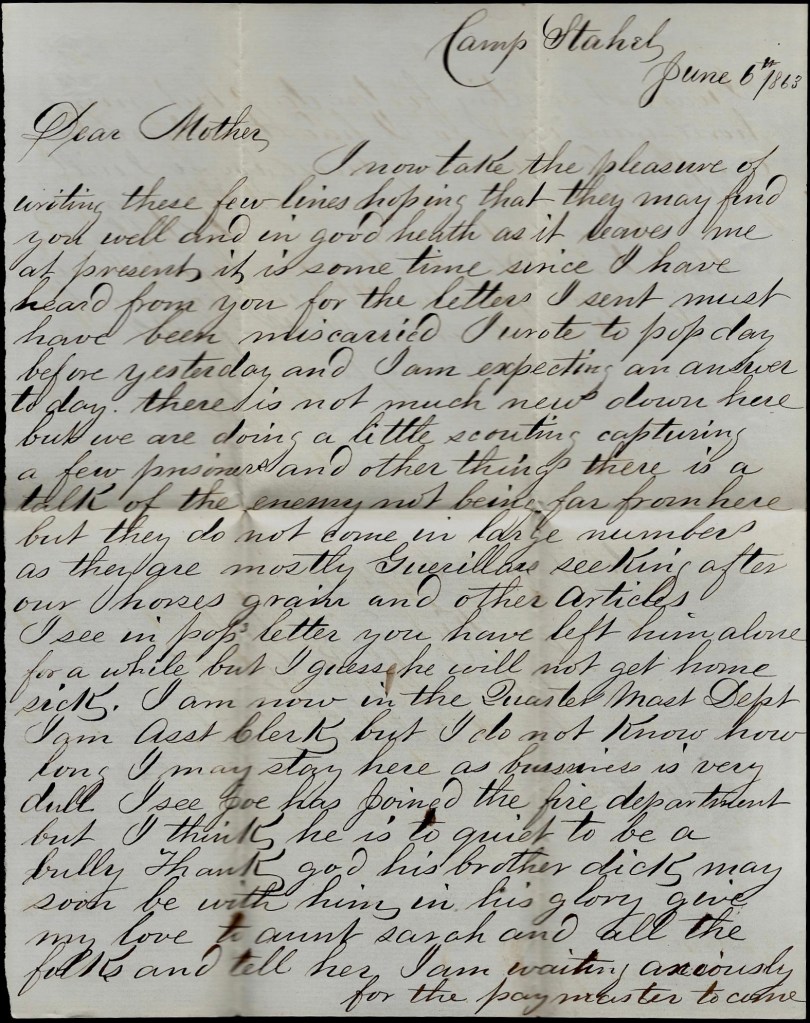 Camp Stahel
June 6th 1863
Dear Mother
I now take the pleasure of
writing these few lines hoping that they may find
you well and in good heath as it leaves me
at present it is some time since I have
heard from you for the letters I sent must
have been miscarried I wrote to pop day
before yesterday and I am expecting an answer
to day. there is not much news down here
but we are doing a little scouting capturing
a few prisoners and other things there is a
talk of the enemy not being far from here
but they do not come in large numbers
as they are mostly Guerillars seeking after
our horses grain and other Articles
I see in pop's letter you have left him alone
for a while but I guess he will not get home
sick. I am now in the Quarter Mast Dept
I am Asst Clerk but I do not Know how
long I may stay here as bussiness is very
dull I see Joe has Joined the fire department
but I think he is to quiet to be a
bully Thank god his brother dick may
soon be with him in his glory give
my love to aunt sarah and all the
folks and tell her I am waiting anxiously
for the paymaster to come